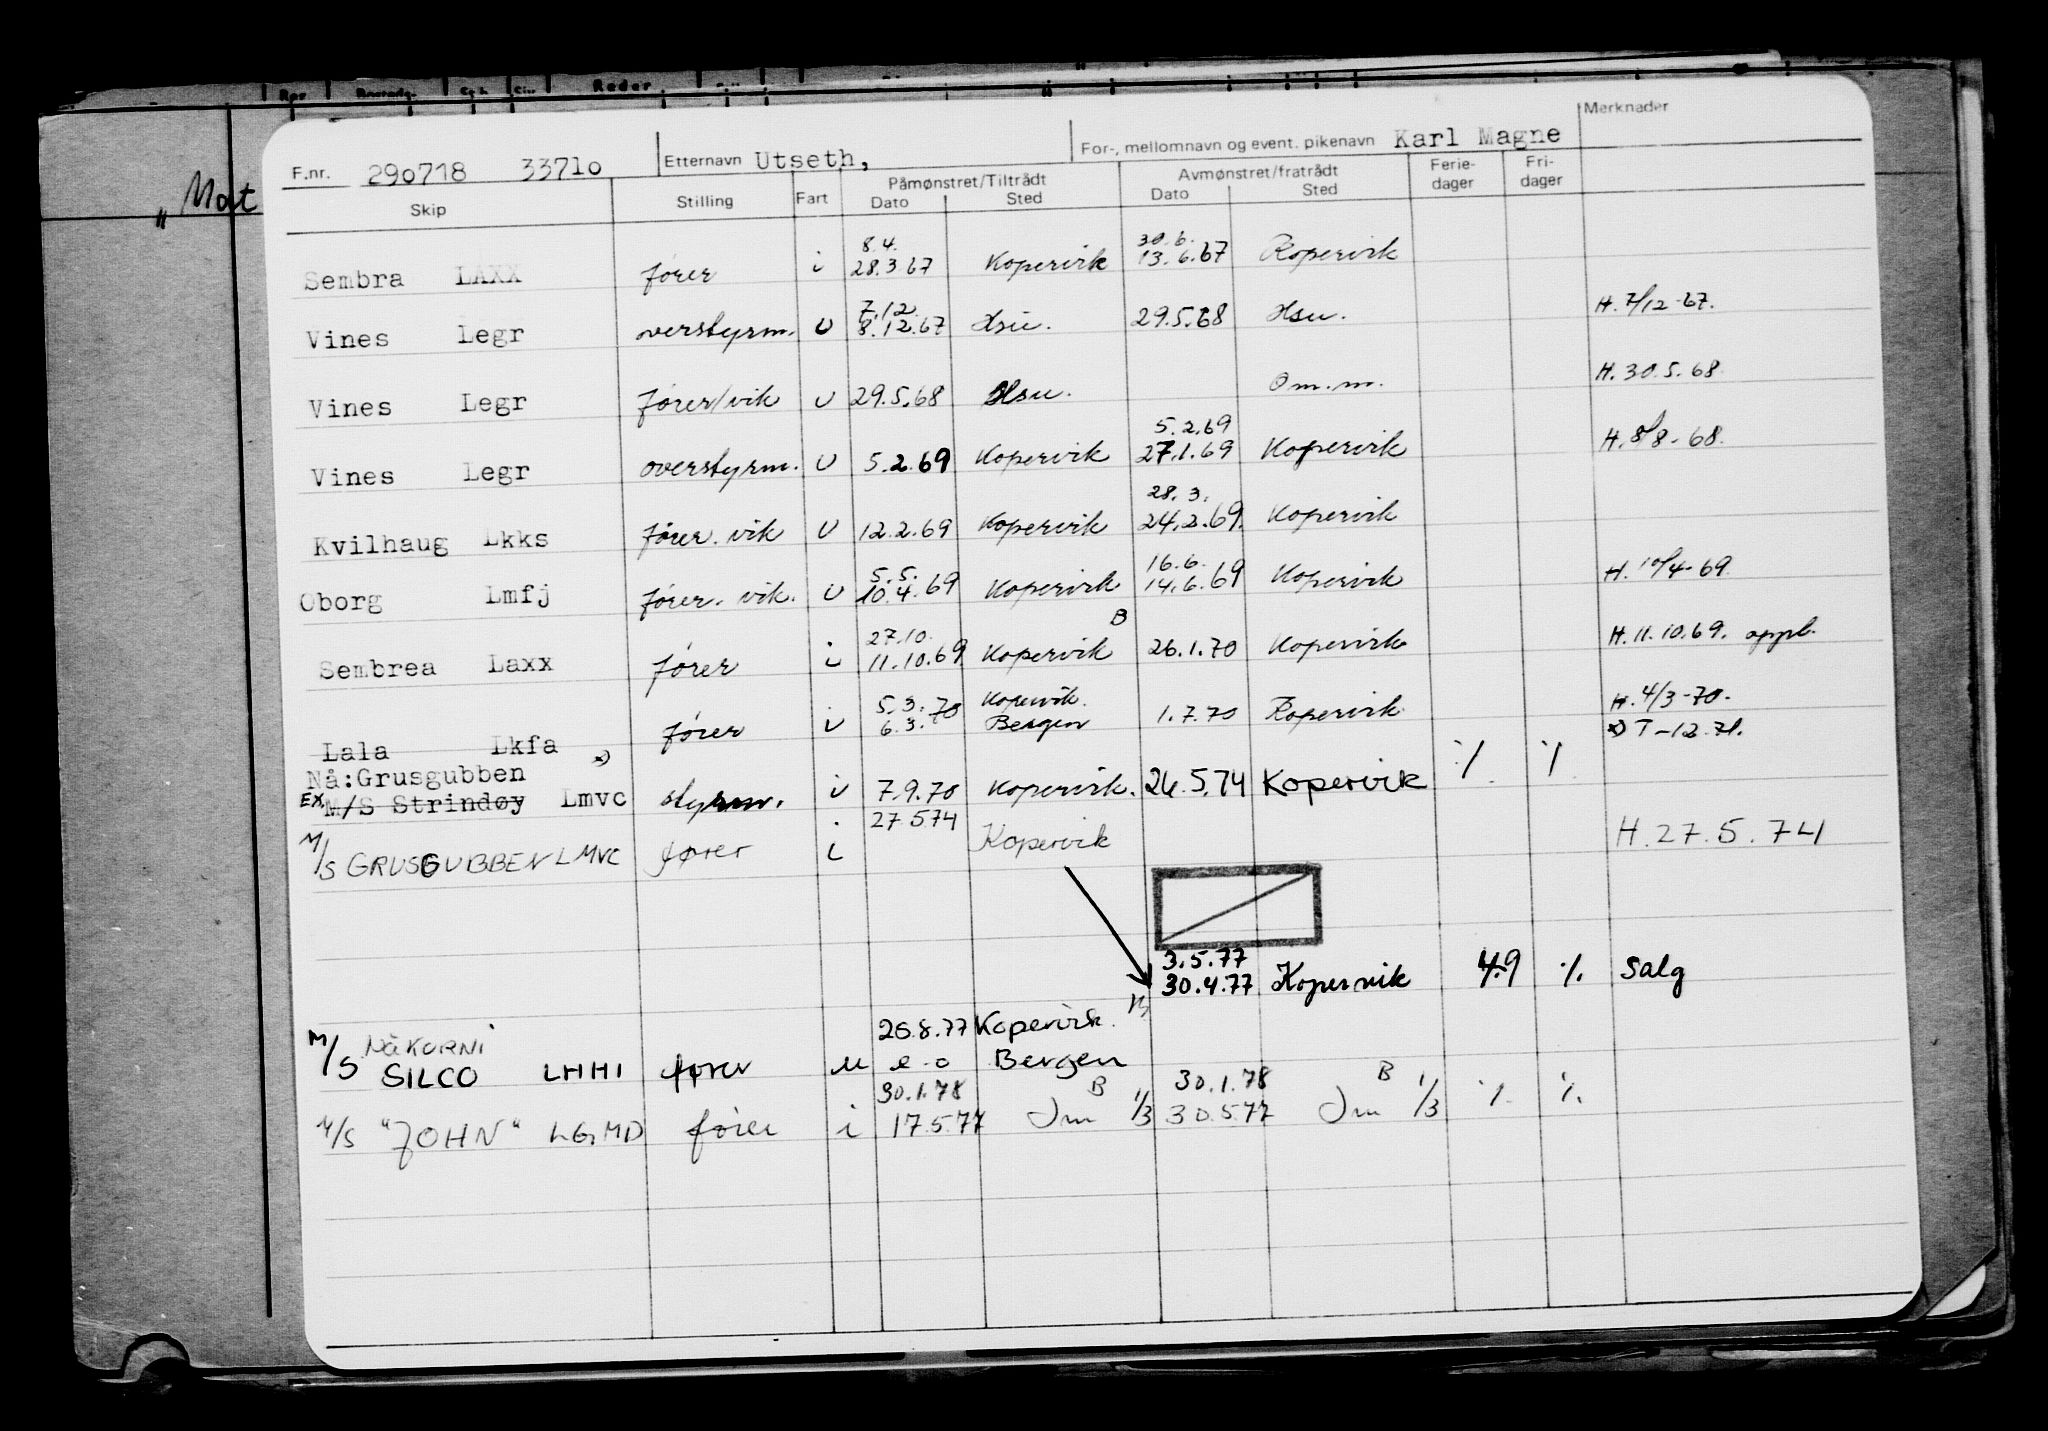 Reder
„ Mat
F.nr. 290718 33710 Etternavn Utseth, For-, mellomnavn og event. pikenavn Karl Magne Merknader
Skip Stilling Fart Påmønstret/Tiltrådt Dato Sted Avmønstret/fratrådt Dato Sted Ferie-dager Fri-dager
8.4. 30.6.
Sembra LAXX fører i 28.3.67 Kopervik 13.6.67 Kopervik
7.12.
Vines Legr overstyrm. u 8.12.67 Hsu. 29.5.68 Hsu. H. 7/12-67.
Vines Legr fører/vik u 29.5.68 Hsu. Om.m. H. 30.5.68
5.2.69
Vines Legr overstyrm. u 5.2.69 Kopervik 27.1.69 Kopervik H. 8/8-68.
28.3.
Kvilhaug Lkks fører. vik u 12.2.69 Kopervik 24.2.69. Kopervik
5.5. 16.6.
Oborg Lmfj fører. vik. u 10.4.69 Kopervik 14.6.69 Kopervik H. 10/4-69.
27.10. B
Sembrea Laxx fører i 11.10.69 Kopervik 26.1.70 Kopervik H. 11.10.69. oppl.
5.3.70 Kopervik. H. 4/3-70.
Lala Lkfa x) fører i 6.3. Bergen 1.7.70 Kopervik x) T-12.71.
Nå:Grusgubben
EX M/S Strindøy Lmvc styrm. i 7.9.70 Kopervik. 26.5.74 Kopervik ./. ./.
27.5.74
M/S GRUSGUBBEN LMVC fører i Kopervik H. 27.5.74
3.5.77
30.4.77 Kopervik 49 ./. Salg
NÅKORNI 26.8.77 Kopervik.
M/S SILCO LHHI fører u e.o Bergen
30.1.78 B 30.1.78 B
M/S "JOHN" LGMD fører i 17.5.77 Jm 1/3 30.5.77 Jm 1/3 ./. ./.